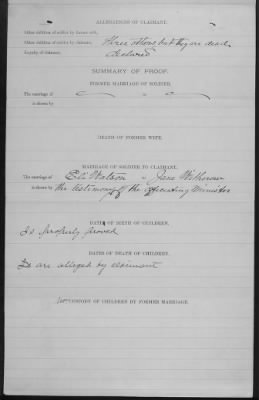 ALLEGATIONS OF CLAIMANT.
Other children of soldier by former wife,
Other children of soldier by claimant, three others but they are dead
Loyalty of claimant, declared
SUMMARY OF PROOF.
FORMER MARRIAGE OF SOLDIER.
The marriage of to
is shown by
DEATH OF FORMER WIFE.
MARRIAGE OF SOLDIER TO CLAIMANT.
The marriage of Eli Watson to Jane Witherow
is shown by the testimony of the officiating minister
DATES OF BIRTH OF CHILDREN.
Is properly proved
DATES OF DEATH OF CHILDREN.
are alleged by claimant
CUSTODY OF CHILDREN BY FORMER MARRIAGE.